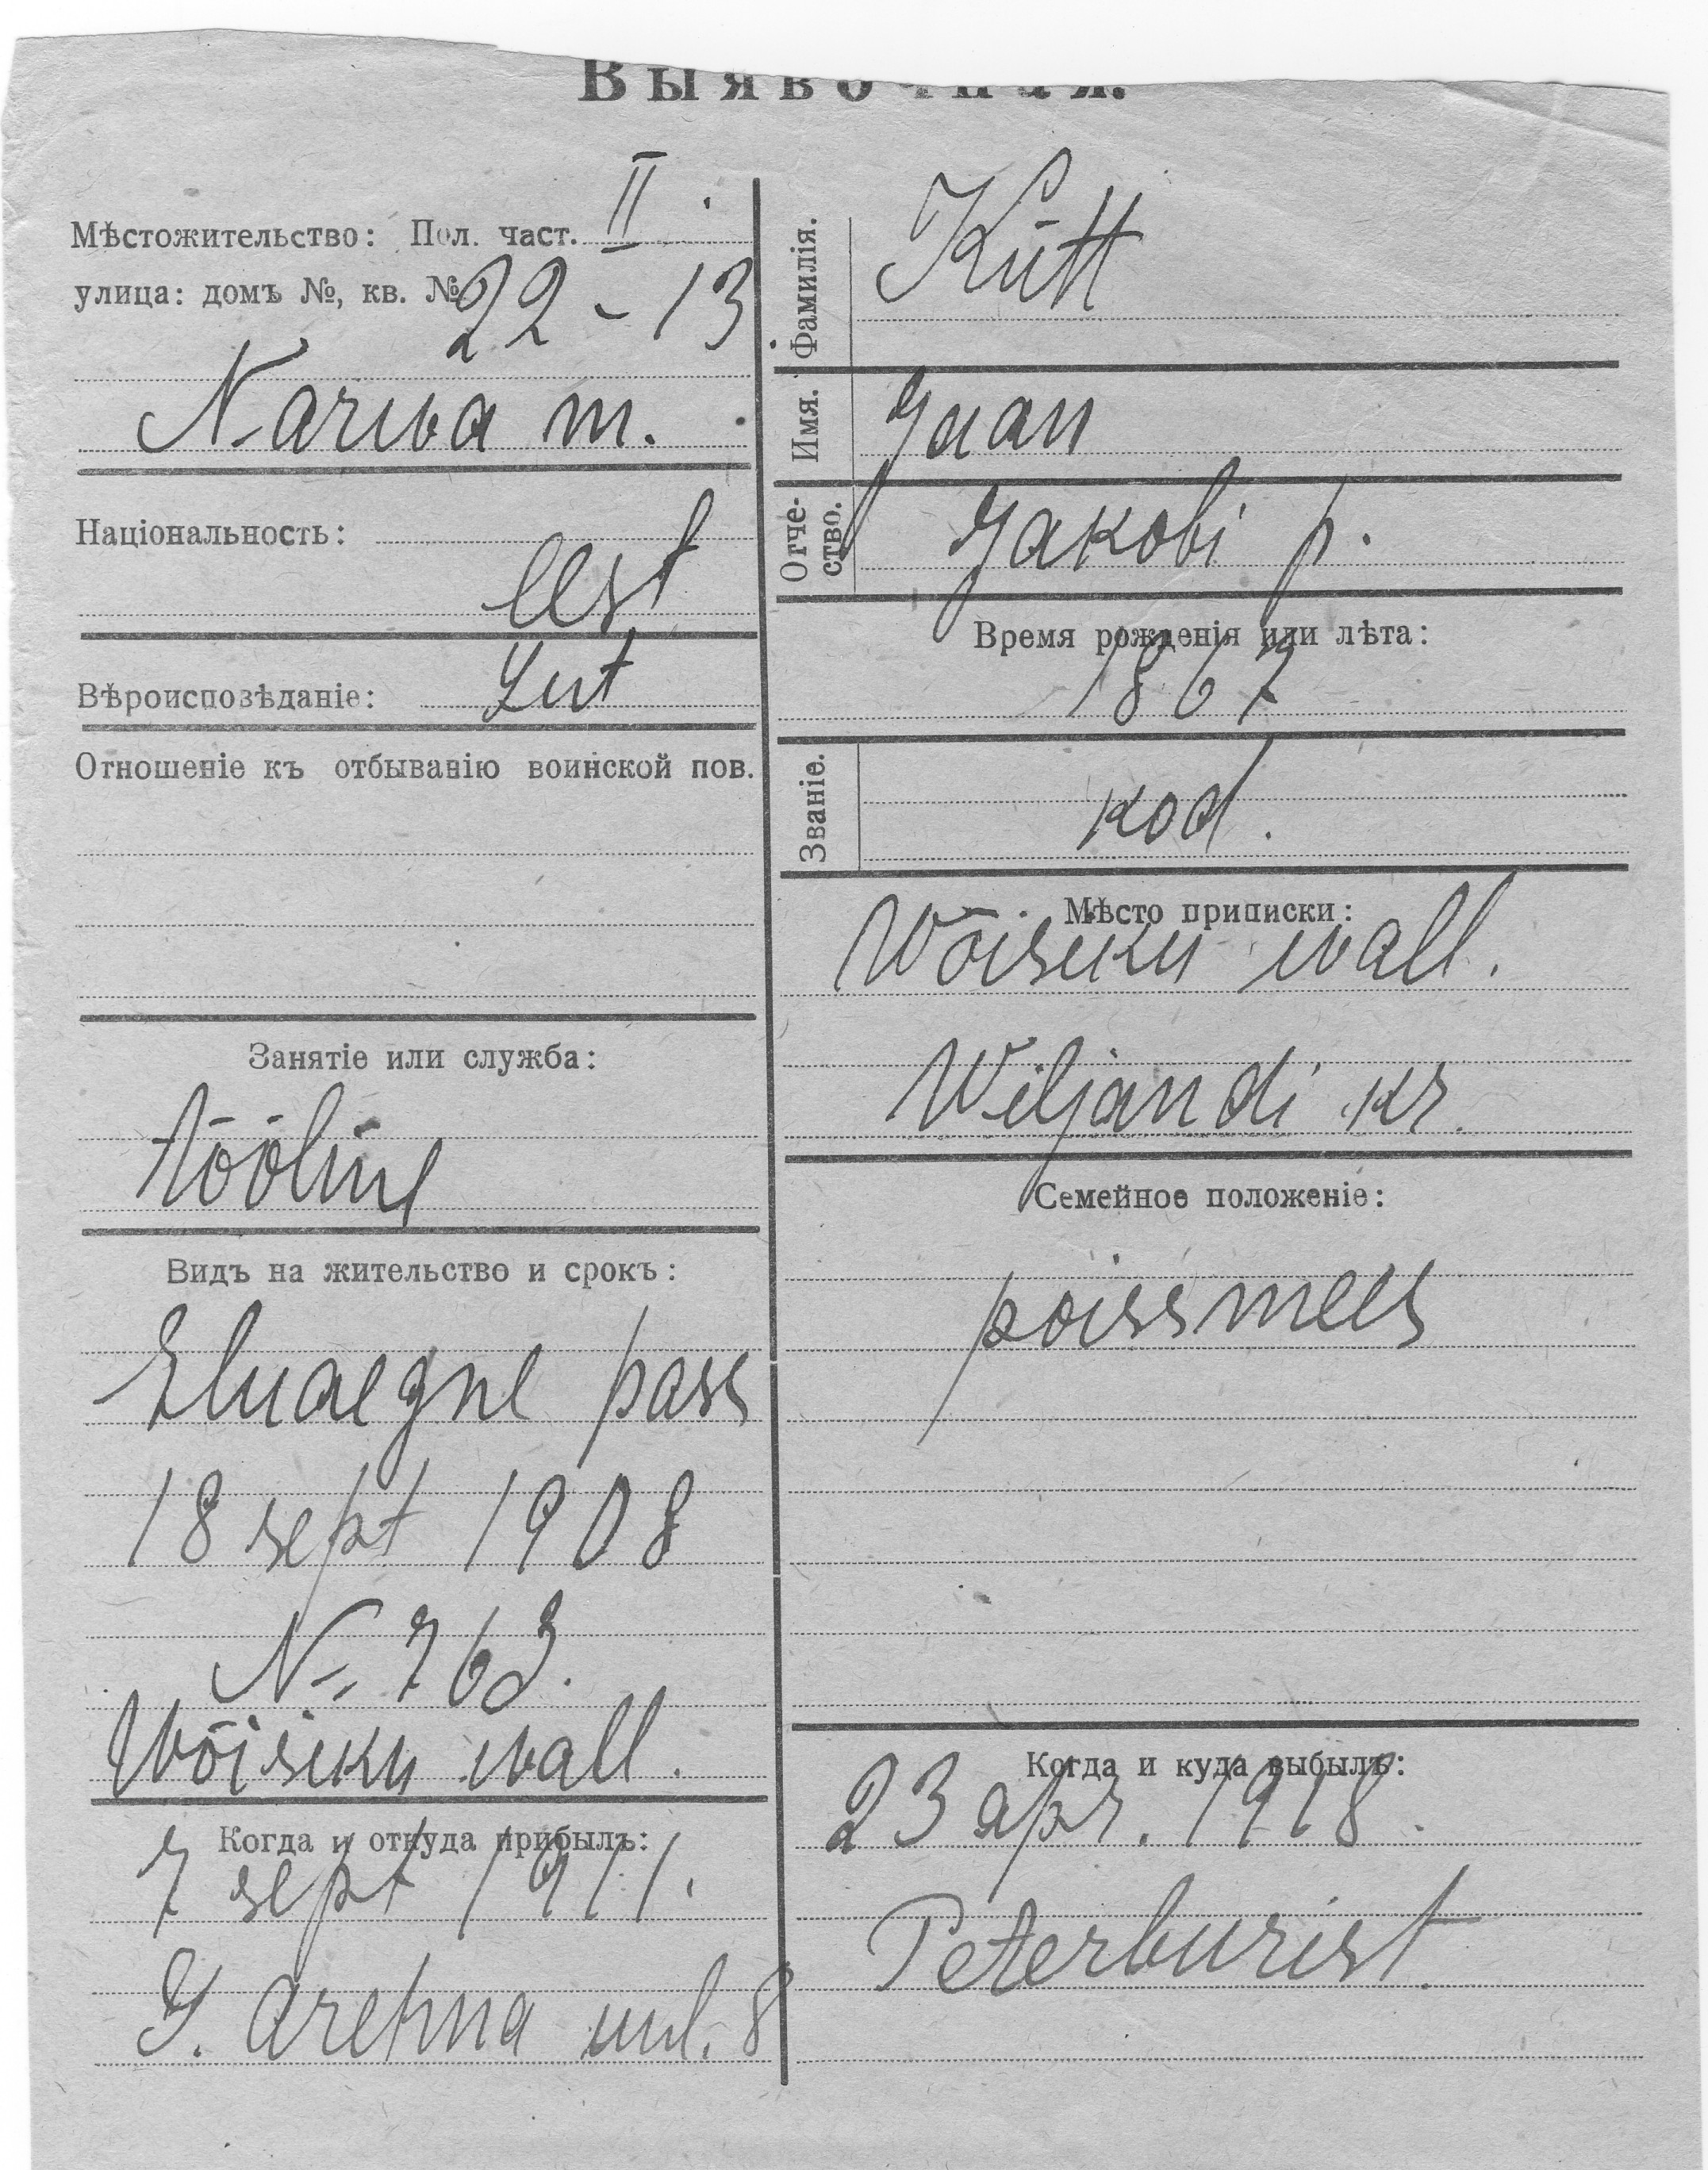 Выявочная.
Мѣстожительство: Пол. част. II.
улица: домъ №, кв. № 22-13
Narwa m.
Національность:
eest
Вѣроисповѣданіе: Lut
Отношеніе къ отбыванію воинской пов.
Занятіе или служба:
tööline
Видъ на жительство и срокъ:
Eluaegne pass
18 sept 1908
N= 763.
Wõisiku wall.
Когда и откуда прибылъ:
7 sept 1911.
J. 8
Фамилія. Kütt
Имя. Juan
Отче-
ство. Jakobi p.
Время рожденія или лѣта:
1867
Званіе. kod.
Мѣсто приписки:
Wõisiku wall.
Wiljandi kr.
Семейное положеніе:
poissmees
Когда и куда выбылъ:
23 apr. 1918.
Peterburist.